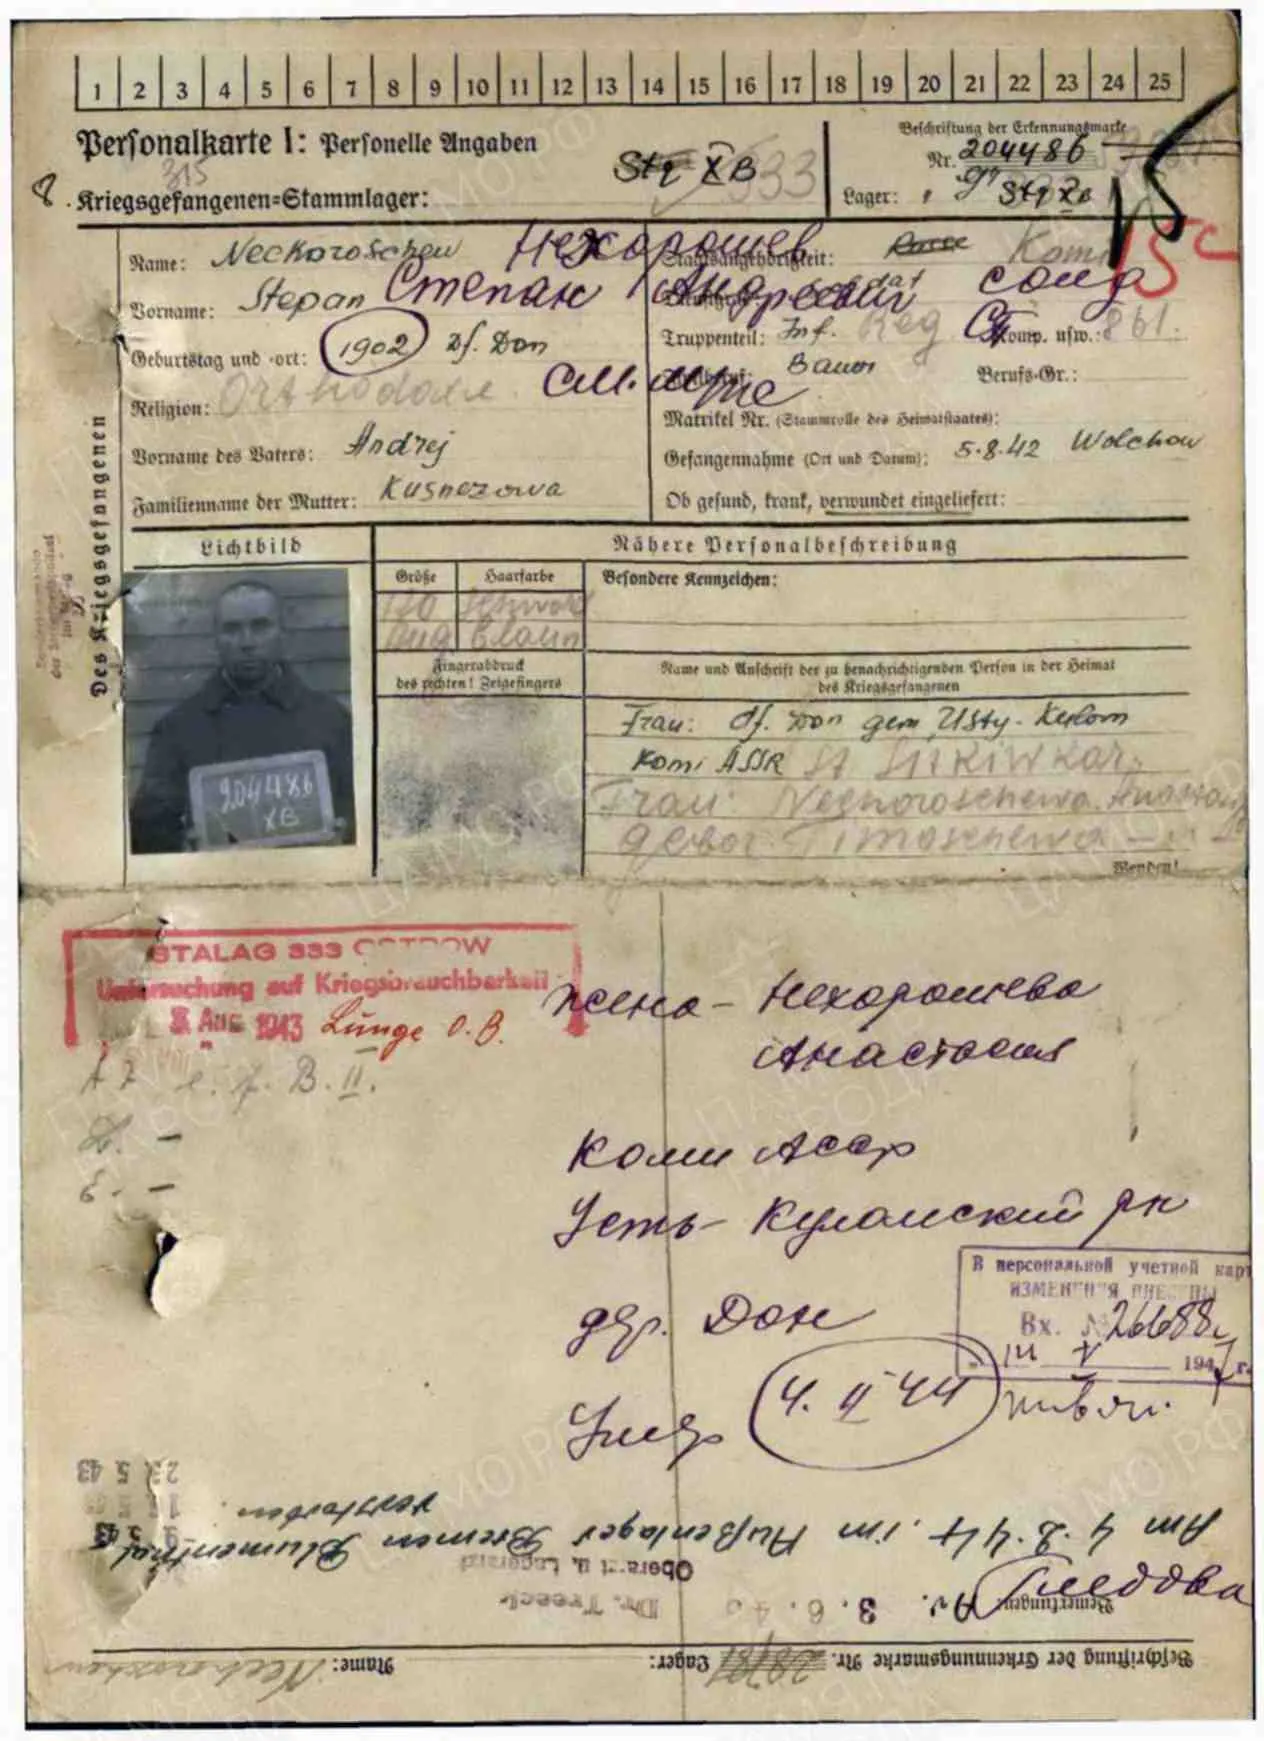 1 2 3 4 5 6 7 8 9 10 11 12 13 14 15 16 17 18 19 20 21 22 23 24 25
Personalkarte I: Personelle Angaben
Beschriftung der Erkennungsmarke
315
Stq XB 333
Nr. 204486
8. Kriegsgefangenen=Stammlager:
Lager: Stq XB
Name: Neckoroschew Нехорошев
Staatsangehörigkeit: Komi
15c
Vorname: Stepan Степан Андреевич солд
Geburtstag und -ort: 1902 Df. Don
Truppenteil: Inf. Reg Komp. usw.: 861
Religion: Orthodoxe
Bauer Berufs-Gr.:
Matrikel Nr. (Stammrolle des Heimatstaates):
Vorname des Vaters: Andrej
Gefangennahme (Ort und Datum): 5.8.42 Wolchow
Familienname der Mutter: Kusnezowa
Ob gesund, krank, verwundet eingeliefert:
Des Kriegsgefangenen
Lichtbild
Nähere Personalbeschreibung
Größe Haarfarbe
170 Schwarz
Aug Braun
Besondere Kennzeichen:
Fingerabdruck
des rechten! Zeigefingers
Name und Anschrift der zu benachrichtigenden Person in der Heimat
des Kriegsgefangenen
204486
XB
Frau: df. Don gem. Usty-Kulom
Komi ASSR
Frau: Nechoroschewa
gebor. Timoschewa
Wenden!
STALAG 333 OSTROW
Untersuchung auf Kriegsbrauchbarkeit
Aug 1943 Lunge O.B.
B. II.
жена - Нехорошева
Анастасия
Коми АССР
Усть-Куломский рн
дер. Дон
В персональной учетной карт
ИЗМЕНЕНИЯ ВНЕСЕНЫ
Вх. № 26688
194 г.
Умер 4. II 44
23. 5. 43
Am 4.2.44 im Außenlager Bremen Blumenthal
verstorben.
Oberarzt u. Lagerarzt
Dr. Treeck
Bemerkungen: Av. 3. 6. 43
Гледова
Beschriftung der Erkennungsmarke Nr. Lager: Name: Nechoroschew